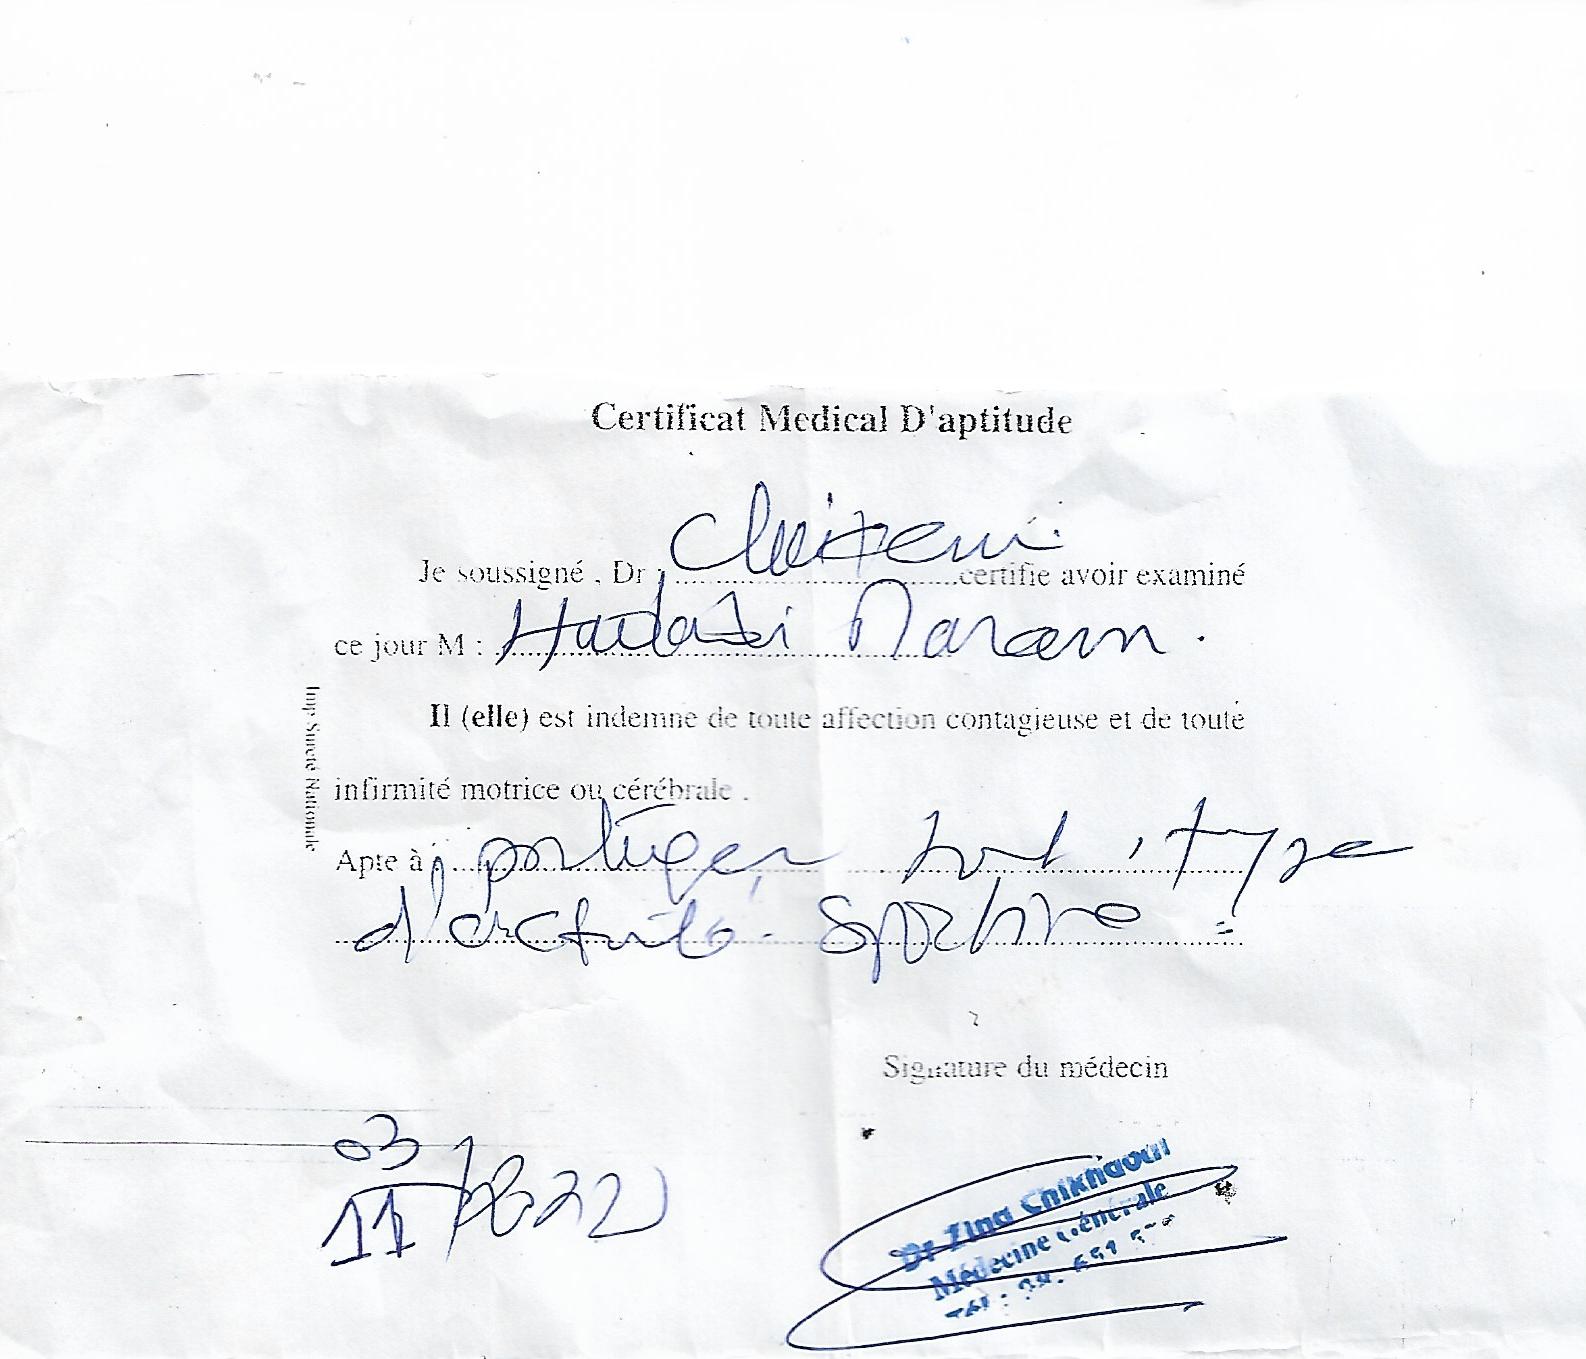 Certificat Medical D'aptitude
Je soussigné , Dr : certifie avoir examiné
ce jour M : Maram .
Il (elle) est indemne de toute affection contagieuse et de toute
infirmité motrice ou cérébrale .
Apte à : tout type
d'activité sportive
Imp Sureté Nationale
Signature du médecin
03
11/2022
Dr Zina Chikhaoui
Médecine Générale